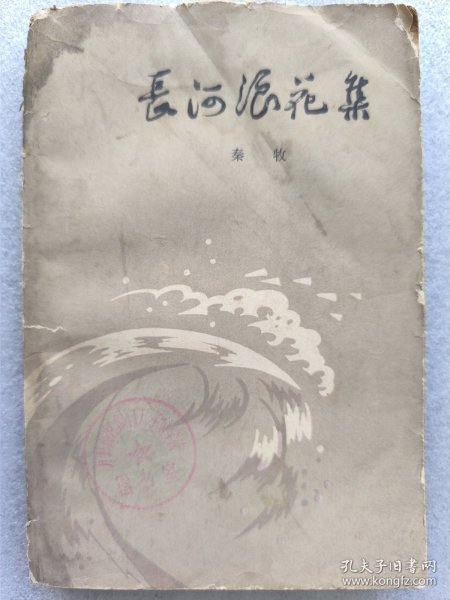 長河浪花集
秦牧
孔夫子旧书网
www.kongfz.com